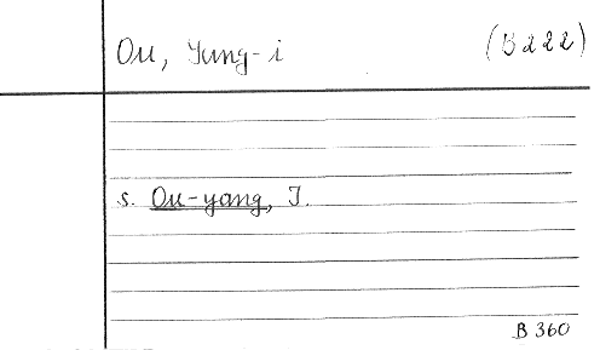 Ou, Yung-i (B 222)
s. Ou-yang, I.
B 360